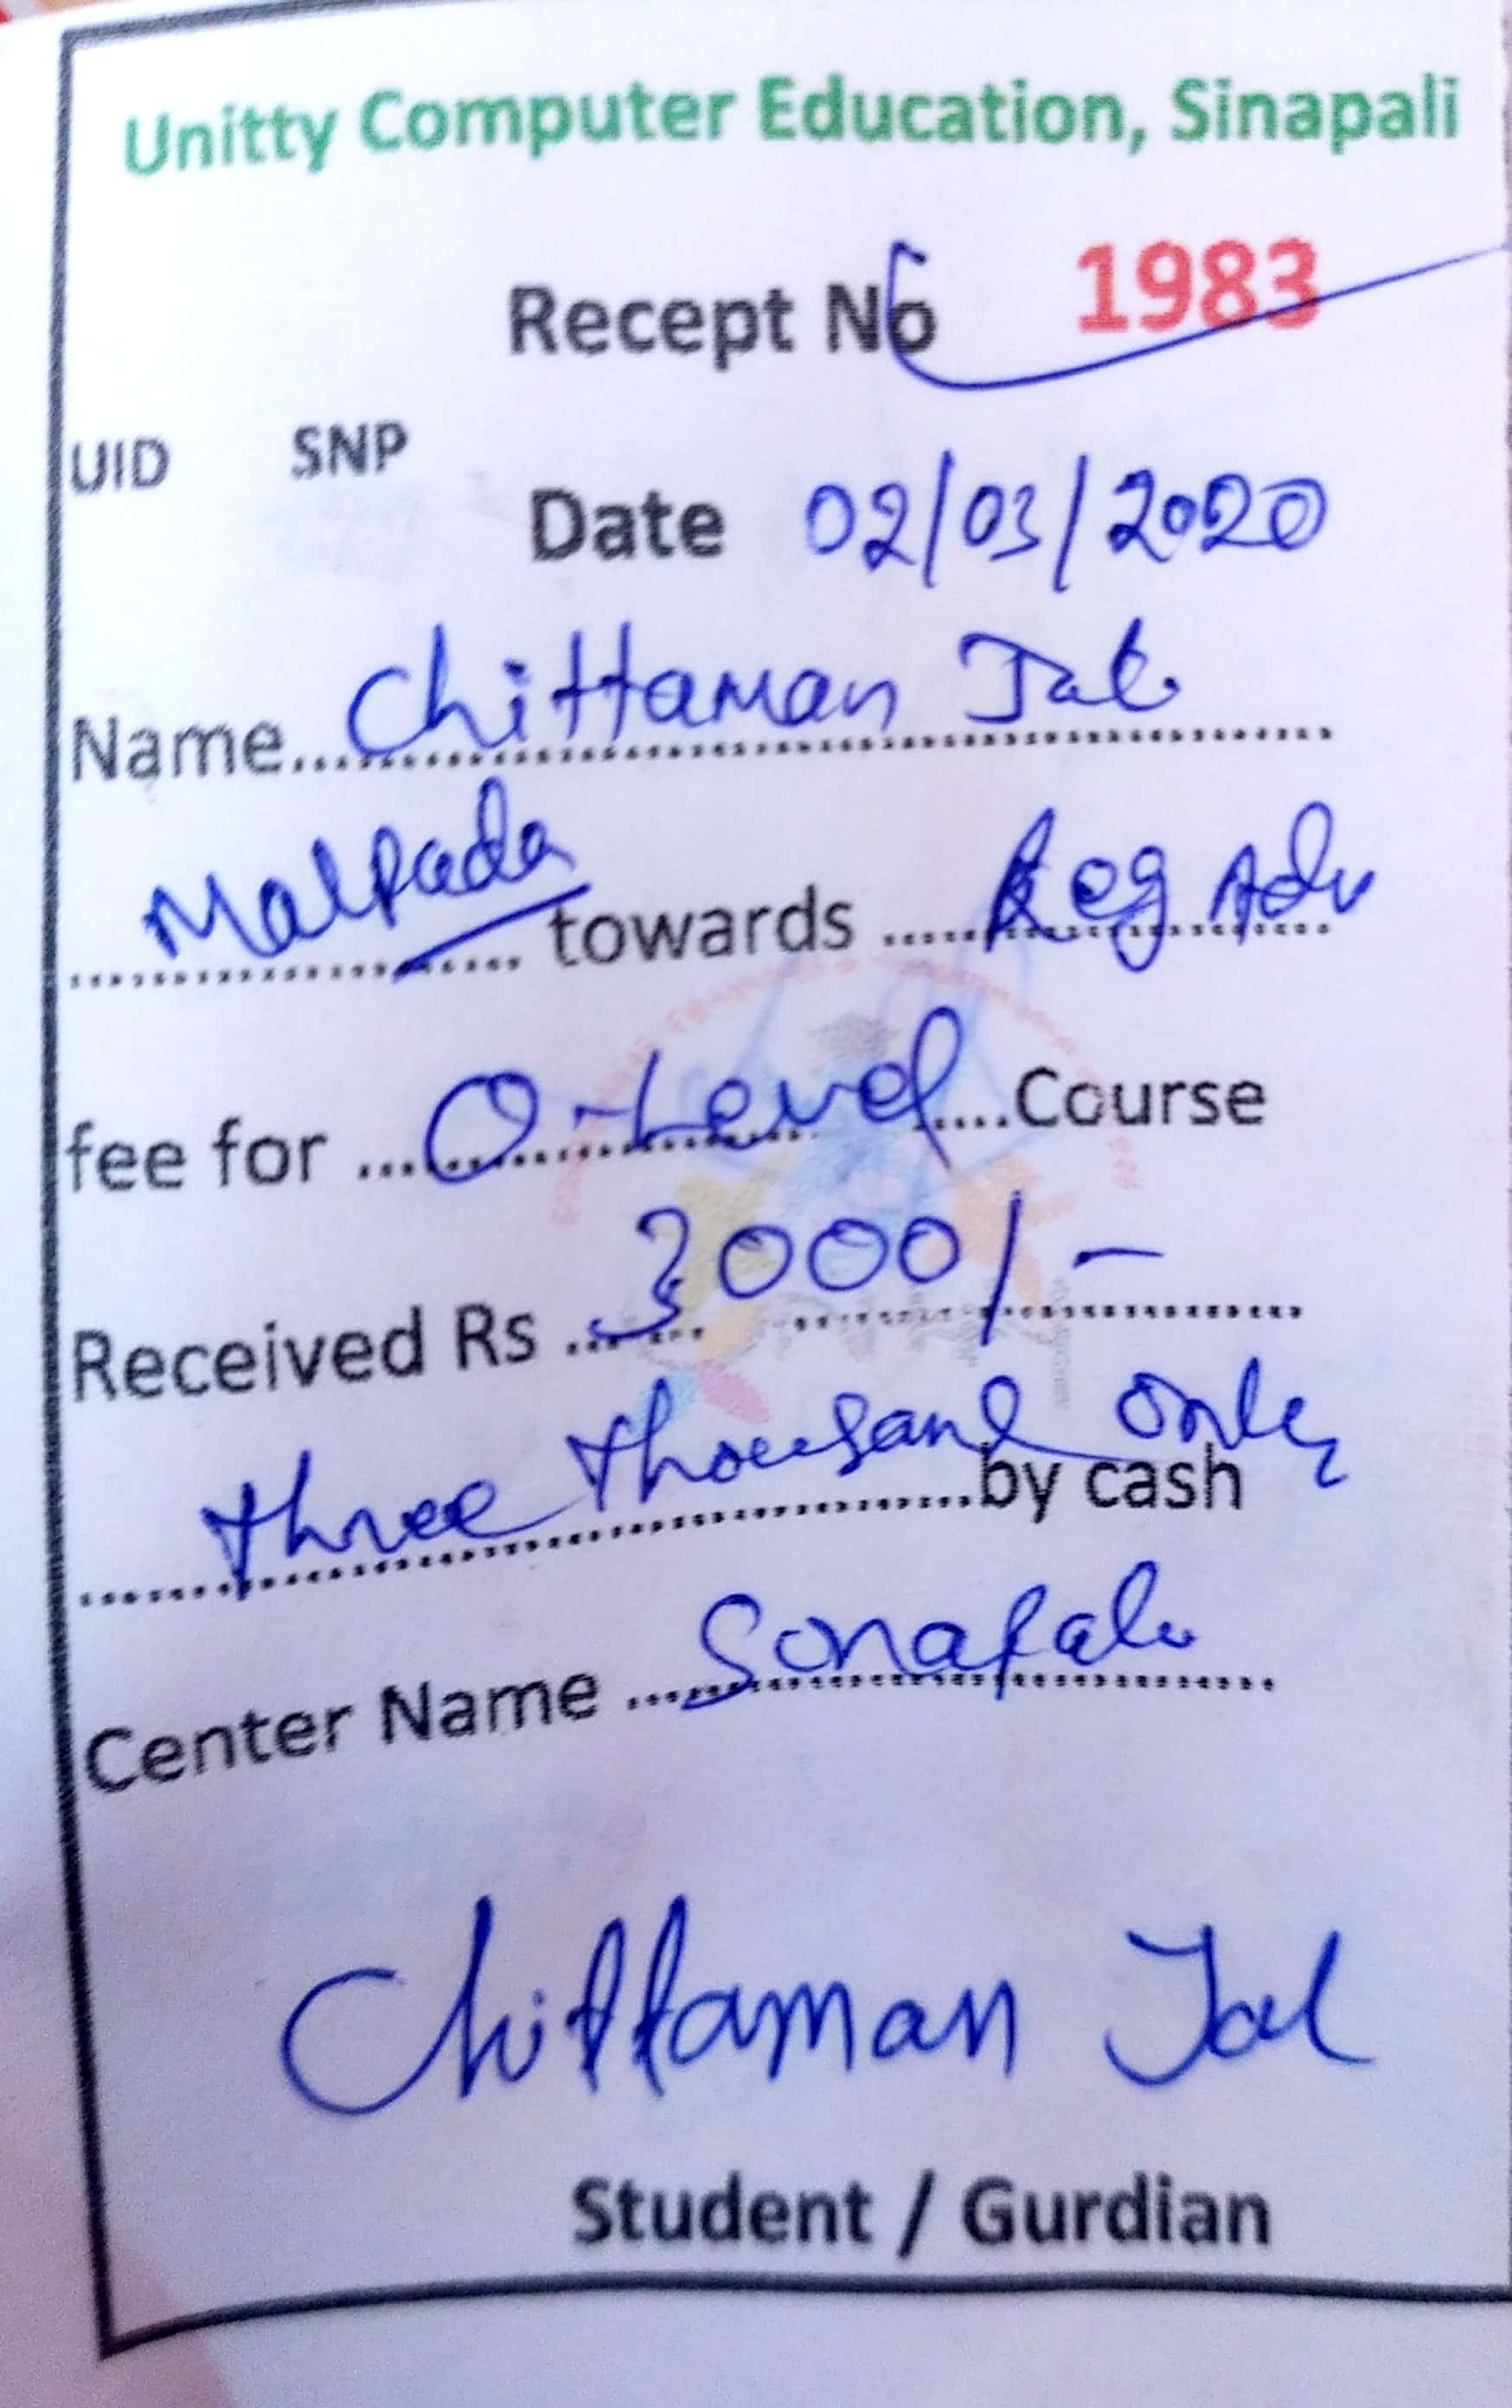 Unitty Computer Education, Sinapali
Recept No 1983
UID SNP
Date 02/03/2020
Name...Chittaman Jal
Malpada towards ....Reg Adv
fee for ...O-Level....Course
Received Rs ...3000/-
three thousand only
...by cash
Center Name ...Sonapali
Chittaman Jal
Student / Gurdian